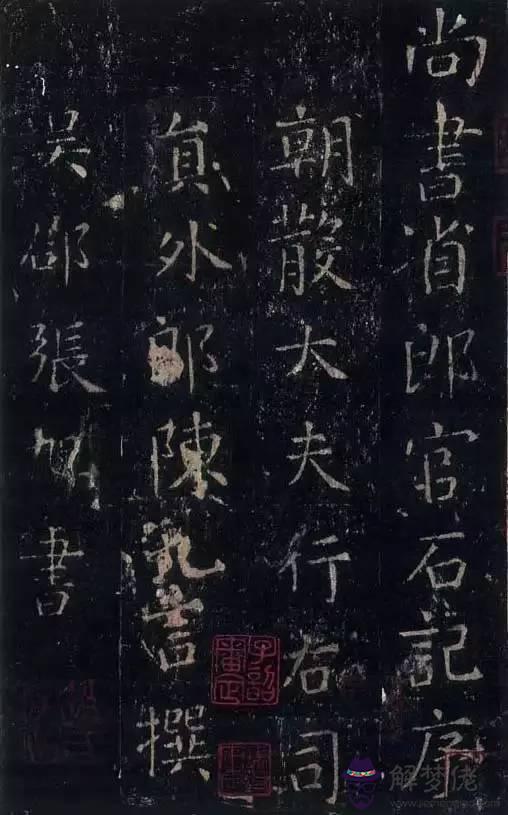 尚書省郎官石記序
朝散大夫行右司
員外郎陳九言撰
吳郡張旭書
解梦佬